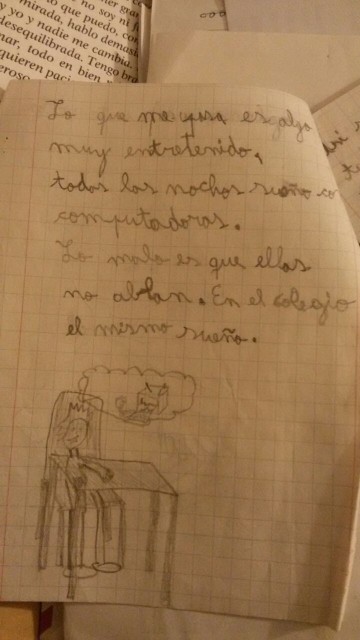 no soy ni
mirada, hablo demasi
yo y nadie me cambia.
desequilibrada. Tengo bra
nar, todo en bien
quieren paci
Lo que me pasa es algo
muy entretenido,
todas las nochos sueño co
computadoras.
Lo malo es que ellas
no ablan. En el colegio
el mismo sueño.